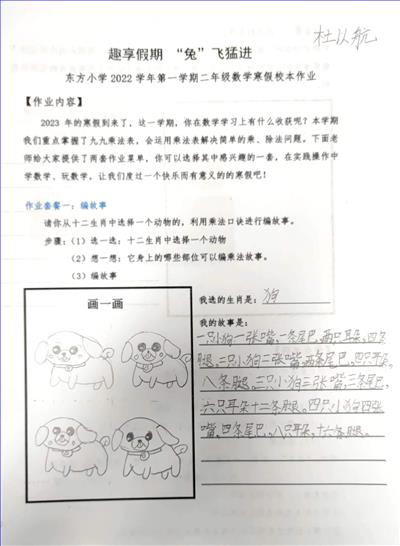 杜以航
趣享假期 “兔”飞猛进
东方小学2022学年第一学期二年级数学寒假校本作业
【作业内容】
2023年的寒假到来了，这一学期，你在数学学习上有什么收获呢？本学期
我们重点掌握了九九乘法表，会运用乘法表解决简单的乘、除法问题。下面老
师给大家提供了两套作业菜单，你可以选择其中感兴趣的一套，在实践操作中
学数学、玩数学，让我们度过一个快乐而有意义的的寒假吧！
作业套餐一：编故事
请你从十二生肖中选择一个动物的，利用乘法口诀进行编故事。
步骤：（1）选一选：十二生肖中选择一个动物
（2）想一想：它身上的哪些部位可以编乘法故事。
（3）编故事
画一画
我选的生肖是：狗
我的故事是：
一只小狗一张嘴，一条尾巴，两只耳朵，四条
腿，二只小狗二张嘴，两条尾巴，四只耳朵，
八条腿，三只小狗三张嘴，三条尾巴，
六只耳朵十二条腿。四只小狗四张
嘴，四条尾巴，八只耳朵，十六条腿。